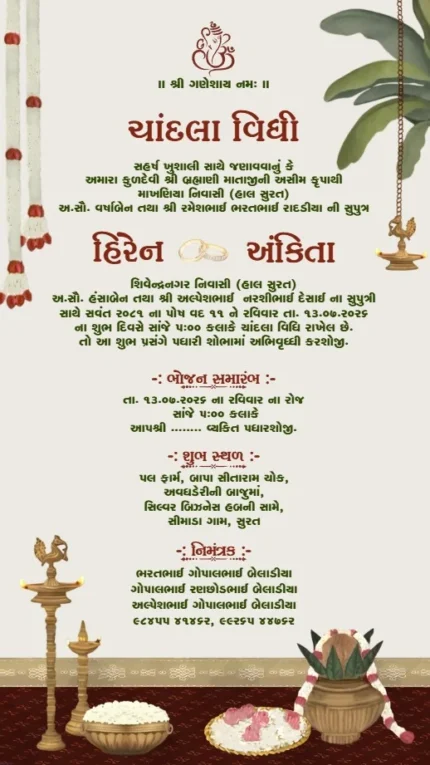 ॥ શ્રી ગણેશાય નમઃ ॥
ચાંદલા વિધી
સહર્ષ ખુશાલી સાથે જણાવવાનું કે
અમારા કુળદેવી શ્રી બ્રહ્માણી માતાજીની અસીમ કૃપાથી
માખણિયા નિવાસી (હાલ સુરત)
અ.સૌ. વર્ષાબેન તથા શ્રી રમેશભાઈ ભરતભાઈ રાદડીયા ની સુપુત્ર
હિરેન અંકિતા
શિવેન્દ્રનગર નિવાસી (હાલ સુરત)
અ.સૌ. હંસાબેન તથા શ્રી અલ્પેશભાઈ નરશીભાઈ દેસાઈ ના સુપુત્રી
સાથે સવંત ૨૦૮૧ ના પોષ વદ ૧૧ ને રવિવાર તા. ૧૩.૦૭.૨૦૨૬
ના શુભ દિવસે સાંજે ૫:૦૦ કલાકે ચાંદલા વિધિ રાખેલ છે.
તો આ શુભ પ્રસંગે પધારી શોભામાં અભિવૃધ્ધી કરશોજી.
-: ભોજન સમારંભ :-
તા. ૧૩.૦૭.૨૦૨૬ ના રવિવાર ના રોજ
સાંજે ૫:૦૦ કલાકે
આપશ્રી ........ વ્યકિત પધારશોજી.
-: શુભ સ્થળ :-
પલ ફાર્મ, બાપા સીતારામ ચોક,
અવધડેરીની બાજુમાં,
સિલ્વર બિઝનેસ હબની સામે,
સીમાડા ગામ, સુરત
-: નિમંત્રક :-
ભરતભાઈ ગોપાલભાઈ બેલાડીયા
ગોપાલભાઈ રણછોડભાઈ બેલાડીયા
અલ્પેશભાઈ ગોપાલભાઈ બેલાડીયા
૯૮૪૫૫ ૪૧૪૬૨, ૯૯૨૬૫ ૪૪૭૬૨